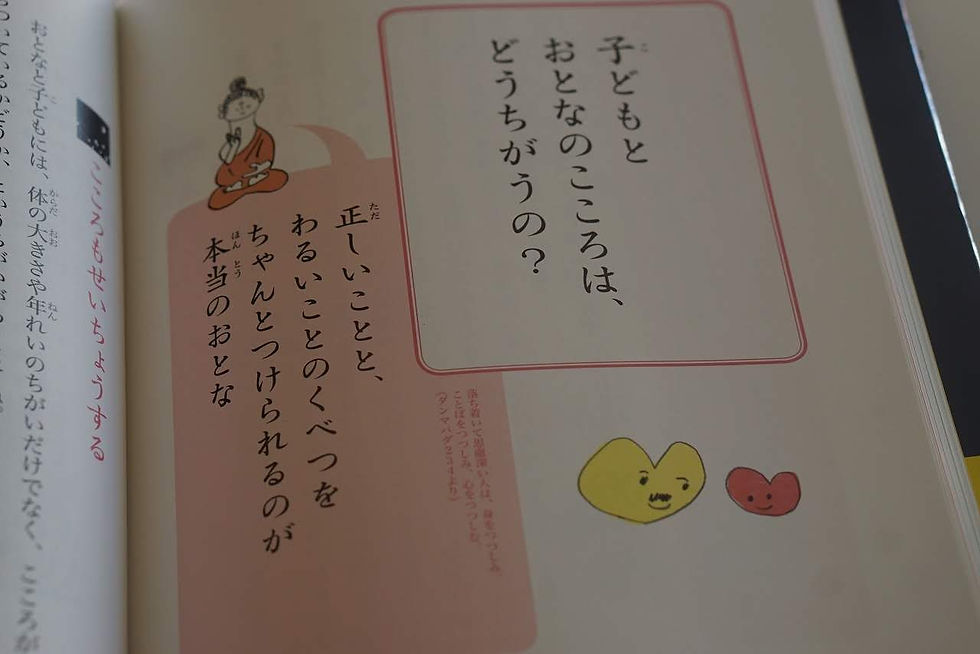 子どもと
おとなのこころは、
どうちがうの？
正しいことと、
わるいことのくべつを
ちゃんとつけられるのが
本当のおとな
落ち着いて思慮深い人は、身をつつしみ
ことばをつつしみ、心をつつしむ。
（ダンマパダ234より）
こころもせいちょうする
おとなと子どもには、体の大きさや年れいのちがいだけでなく、こころが